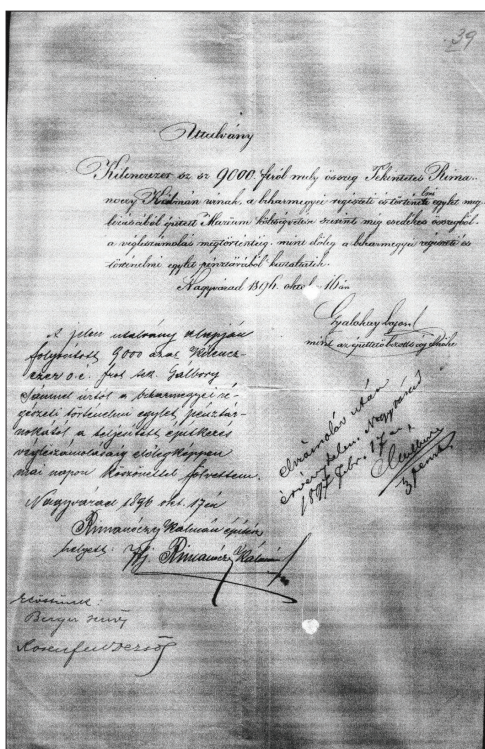 39
Utalvány
Kilenczezer az az 9000. frtról mely összeg Tekintetes Rima-
noczy Kálmán urnak, a biharmegyei régészeti és történelmi egylet meg
bizásából épitett Muzeum költségvetése szerint még esedékes összegből
a végleszámolás megtörténteig, mint előleg a biharmegyei régészeti és
történelmi egylet pénztárából kiutaltatik.
Nagyvárad 1896 oktob. 16án
Gyalokay Lajos
mint az épittető bizottság elnöke
A jelen utalvány alapján
folyósitott 9000 azaz Kilencz-
ezer o.é. frtot tek. Gálbory
Sámuel urtól a biharmegyei ré-
gészeti történelmi egylet pénztár-
nokától a teljesitett épitkezés
végleszámolásáig előlegképpen
mai napon köszönettel fölvettem.
Nagyvárad 1896 okt. 17én
Rimanóczy Kálmán épitész
helyett: Ifj. Rimanóczy Kálmán
Elszámolás után
érvénytelen. Nagyvárad
1897 febr. 17én,
Előttünk:
Berger
Rosenfeld Dezső